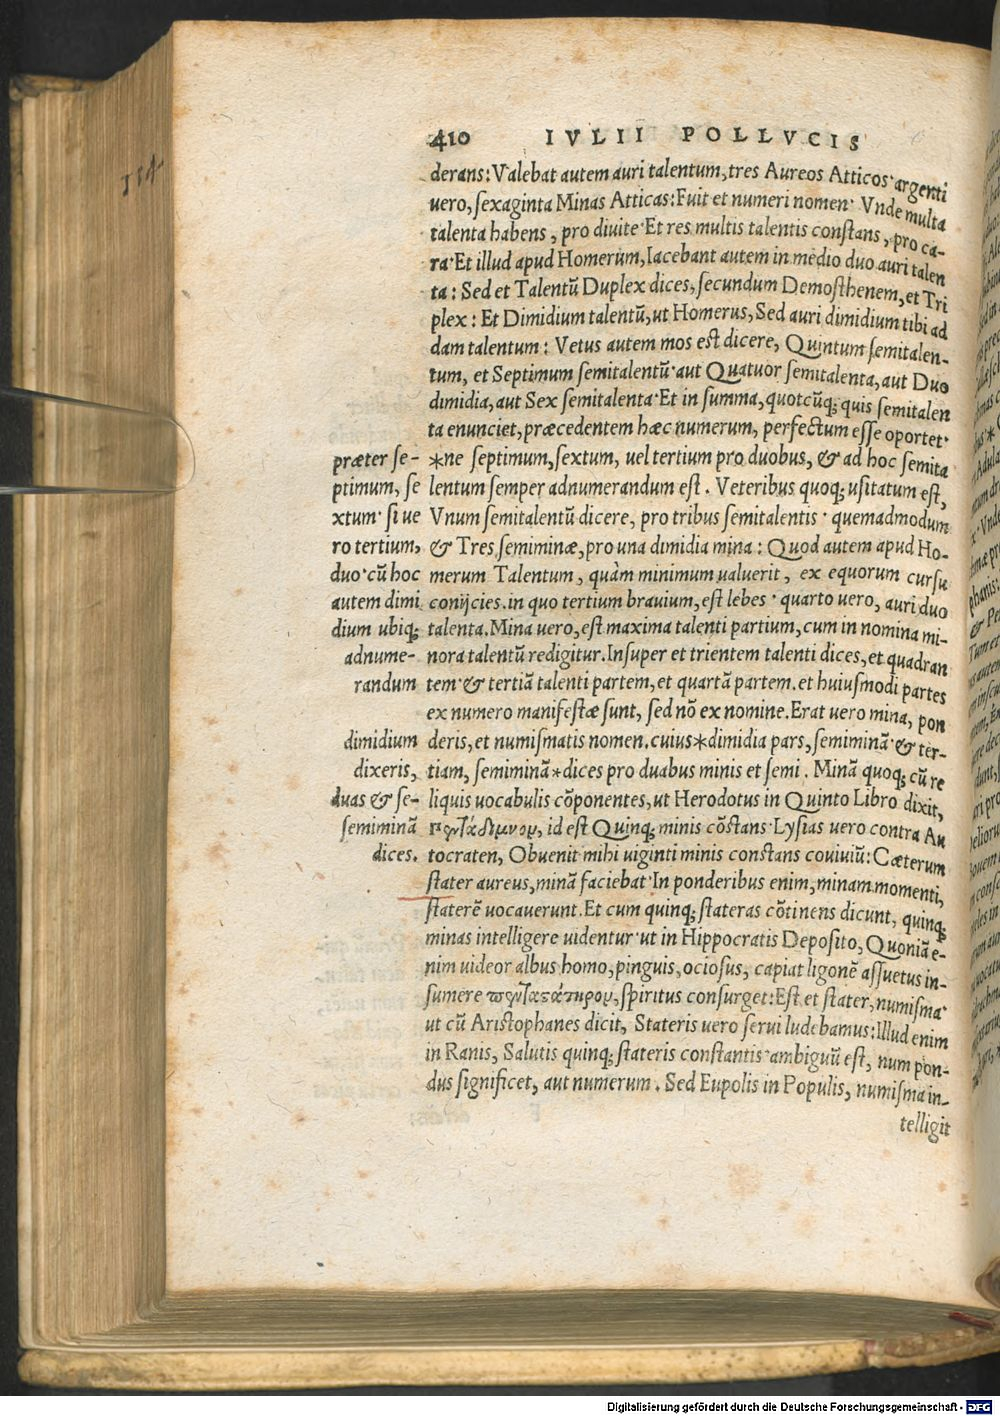 114
410 IVLII POLLVCIS
derans: Valebat autem auri talentum, tres Aureos Atticos· argenti
uero, sexaginta Minas Atticas: Fuit et numeri nomen· Vnde multa
talenta habens, pro diuite· Et res multis talentis constans, pro ca-
ra· Et illud apud Homerum, Iacebant autem in medio duo auri talen
ta: Sed et Talentū Duplex dices, secundum Demosthenem, et Tri
plex: Et Dimidium talentū, ut Homerus, Sed auri dimidium tibi ad
dam talentum: Vetus autem mos est dicere, Quintum semitalen-
tum, et Septimum semitalentū· aut Quatuor semitalenta, aut Duo
dimidia, aut Sex semitalenta· Et in summa, quotcūq; quis semitalen
ta enunciet, præcedentem hæc numerum, perfectum esse oportet·
*ne septimum, sextum, uel tertium pro duobus, & ad hoc semita
lentum semper adnumerandum est. Veteribus quoq; usitatum est,
Vnum semitalentū dicere, pro tribus semitalentis· quemadmodum
& Tres semiminæ, pro una dimidia mina: Quod autem apud Ho-
merum Talentum, quàm minimum ualuerit, ex equorum cursu
conijcies. in quo tertium brauium, est lebes· quarto uero, auri duo
talenta. Mina uero, est maxima talenti partium, cum in nomina mi-
nora talentū redigitur. Insuper et trientem talenti dices, et quadran
tem· & tertiā talenti partem, et quartā partem. et huiusmodi partes
ex numero manifestæ sunt, sed nō ex nomine. Erat uero mina, pon
deris, et numismatis nomen. cuius*dimidia pars, semiminā· & ter-
tiam, semiminā*dices pro duabus minis et semi. Minā quoq; cū re
liquis uocabulis cōponentes, ut Herodotus in Quinto Libro dixit,
πενταδίμνον, id est Quinq; minis cōstans· Lysias uero contra Au
tocraten, Obuenit mihi uiginti minis constans couiuiū: Cæterum
stater aureus, minā faciebat· In ponderibus enim, minam momenti,
staterē uocauerunt. Et cum quinq; stateras cōtinens dicunt, quinq;
minas intelligere uidentur· ut in Hippocratis Deposito, Quoniā e-
nim uideor albus homo, pinguis, ociosus, capiat ligonē assuetus in-
sumere πενταστάτηρον, spiritus consurget: Est et stater, numisma·
ut cū Aristophanes dicit, Stateris uero serui ludebamus: Illud enim
in Ranis, Salutis quinq; stateris constantis· ambiguū est, num pon-
dus significet, aut numerum. Sed Eupolis in Populis, numisma in-
telligit
præter se-
ptimum, se
xtum· si ue
ro tertium,
duo· cū hoc
autem dimi
dium ubiq;
adnume-
randum
dimidium
dixeris,
duas & se-
semiminā
dices.
Digitalisierung gefördert durch die Deutsche Forschungsgemeinschaft - DFG